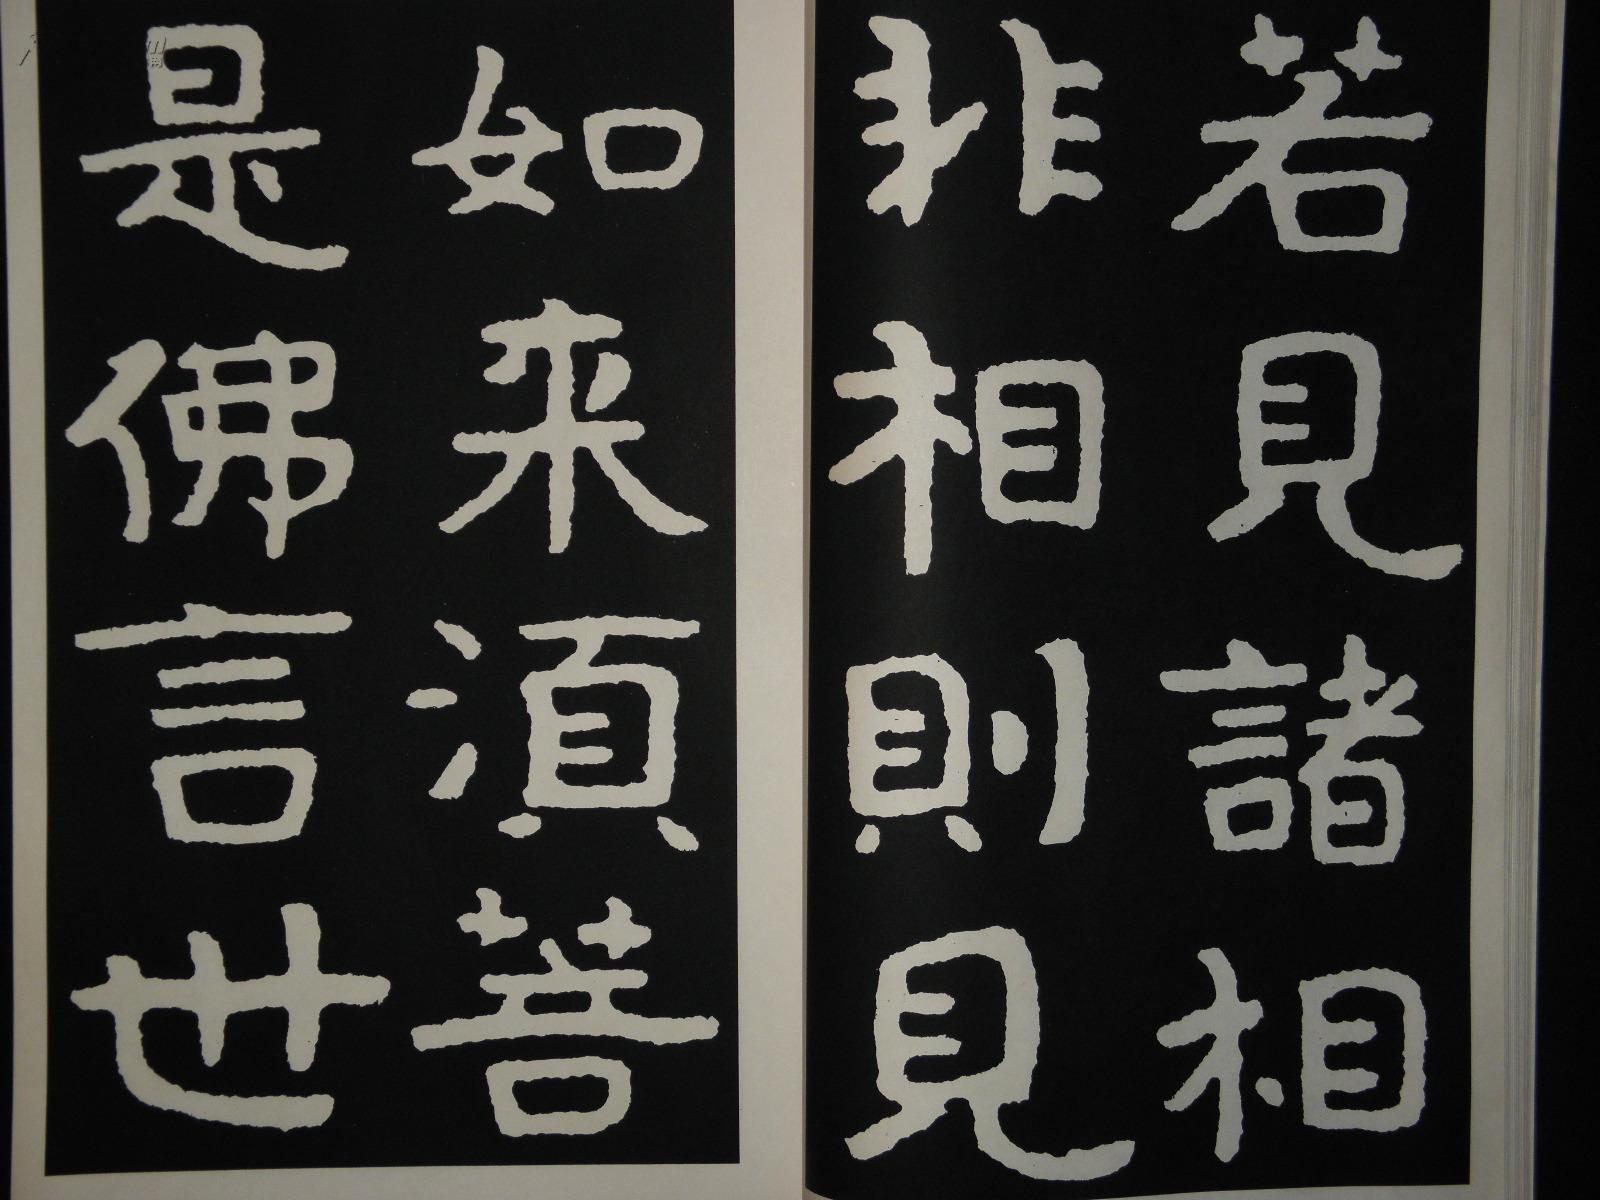 若見諸相
非相則見
如来湏菩
是佛言世